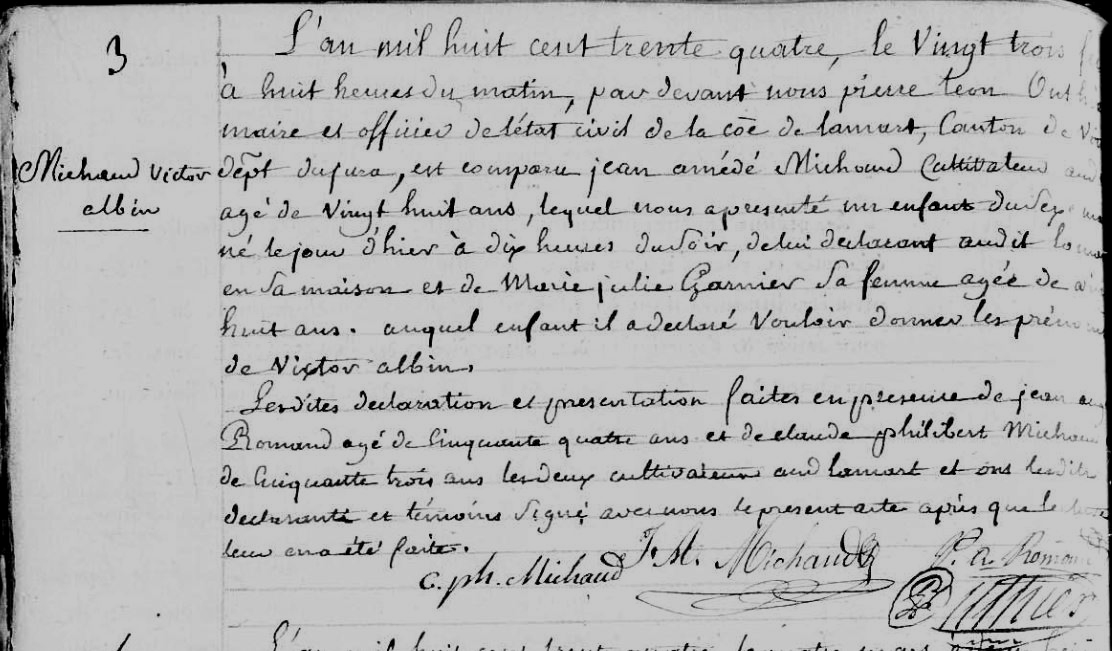 3
L'an mil huit cent trente quatre, le Vingt trois
à huit heures du matin, par devant nous pierre leon
maire et officier de l'état civil de la coe de lamart, Canton de
Michaud Victor albin
dept dujura, est comparu jean amédé Michaud Cultivateur
agé de Vingt huit ans, lequel nous apresenté un enfant du Sexe
né le jour d'hier à dix heures du Soir, de lui declarant audit
en Sa maison et de Marie julie Garnier Sa femme agée de
huit ans. auquel enfant il a declaré Vouloir donner les
de Victor albin.
Lesdites declaration et presentation faites en presence de jean
Romand agé de Cinquante quatre ans et de claude philibert
de Cinquante trois ans les deux cultivateurs aud lamart et ont lesdits
declarants et témoins Signé avec nous le present acte après que
leur en a été faite.
C. ph. Michaud J. A. Michaud